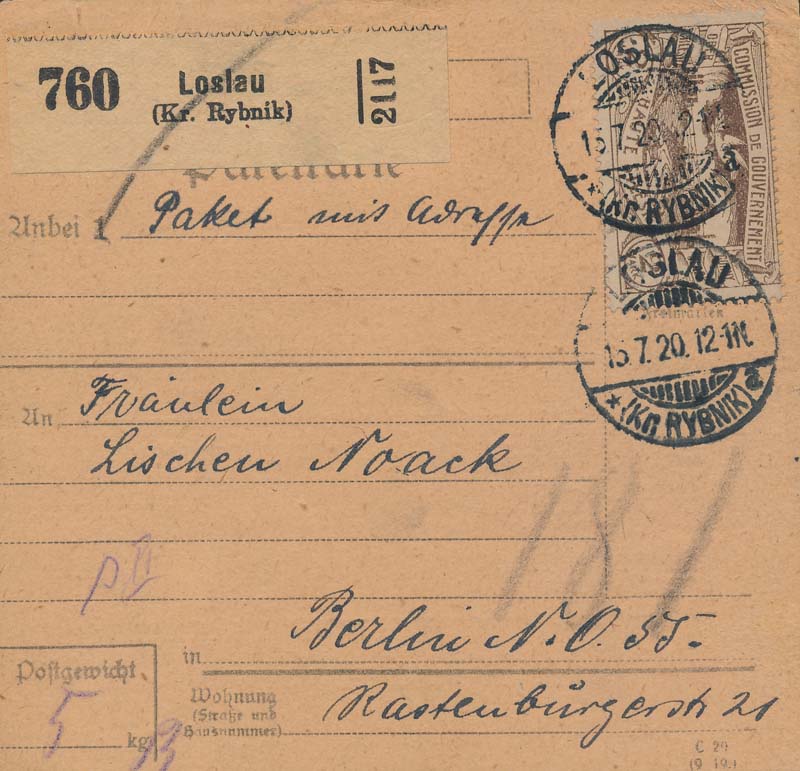 760 Loslau
(Kr. Rybnik)
2117
LOSLAU
15.7.20.12-1N.
* (Kr. RYBNIK) a
COMMISSION DE GOUVERNEMENT
HAUTE
Anbei 1 Paket mit Adresse
LOSLAU
15.7.20.12-1N.
* (Kr. RYBNIK) a
An Fräulein
Lischen Noack
181
p II
in Berlin N.O. 55.
Postgewicht
5 kg
Wohnung
(Straße und
Hausnummer)
Rastenburgerstr 21
C 29
(9. 19.)